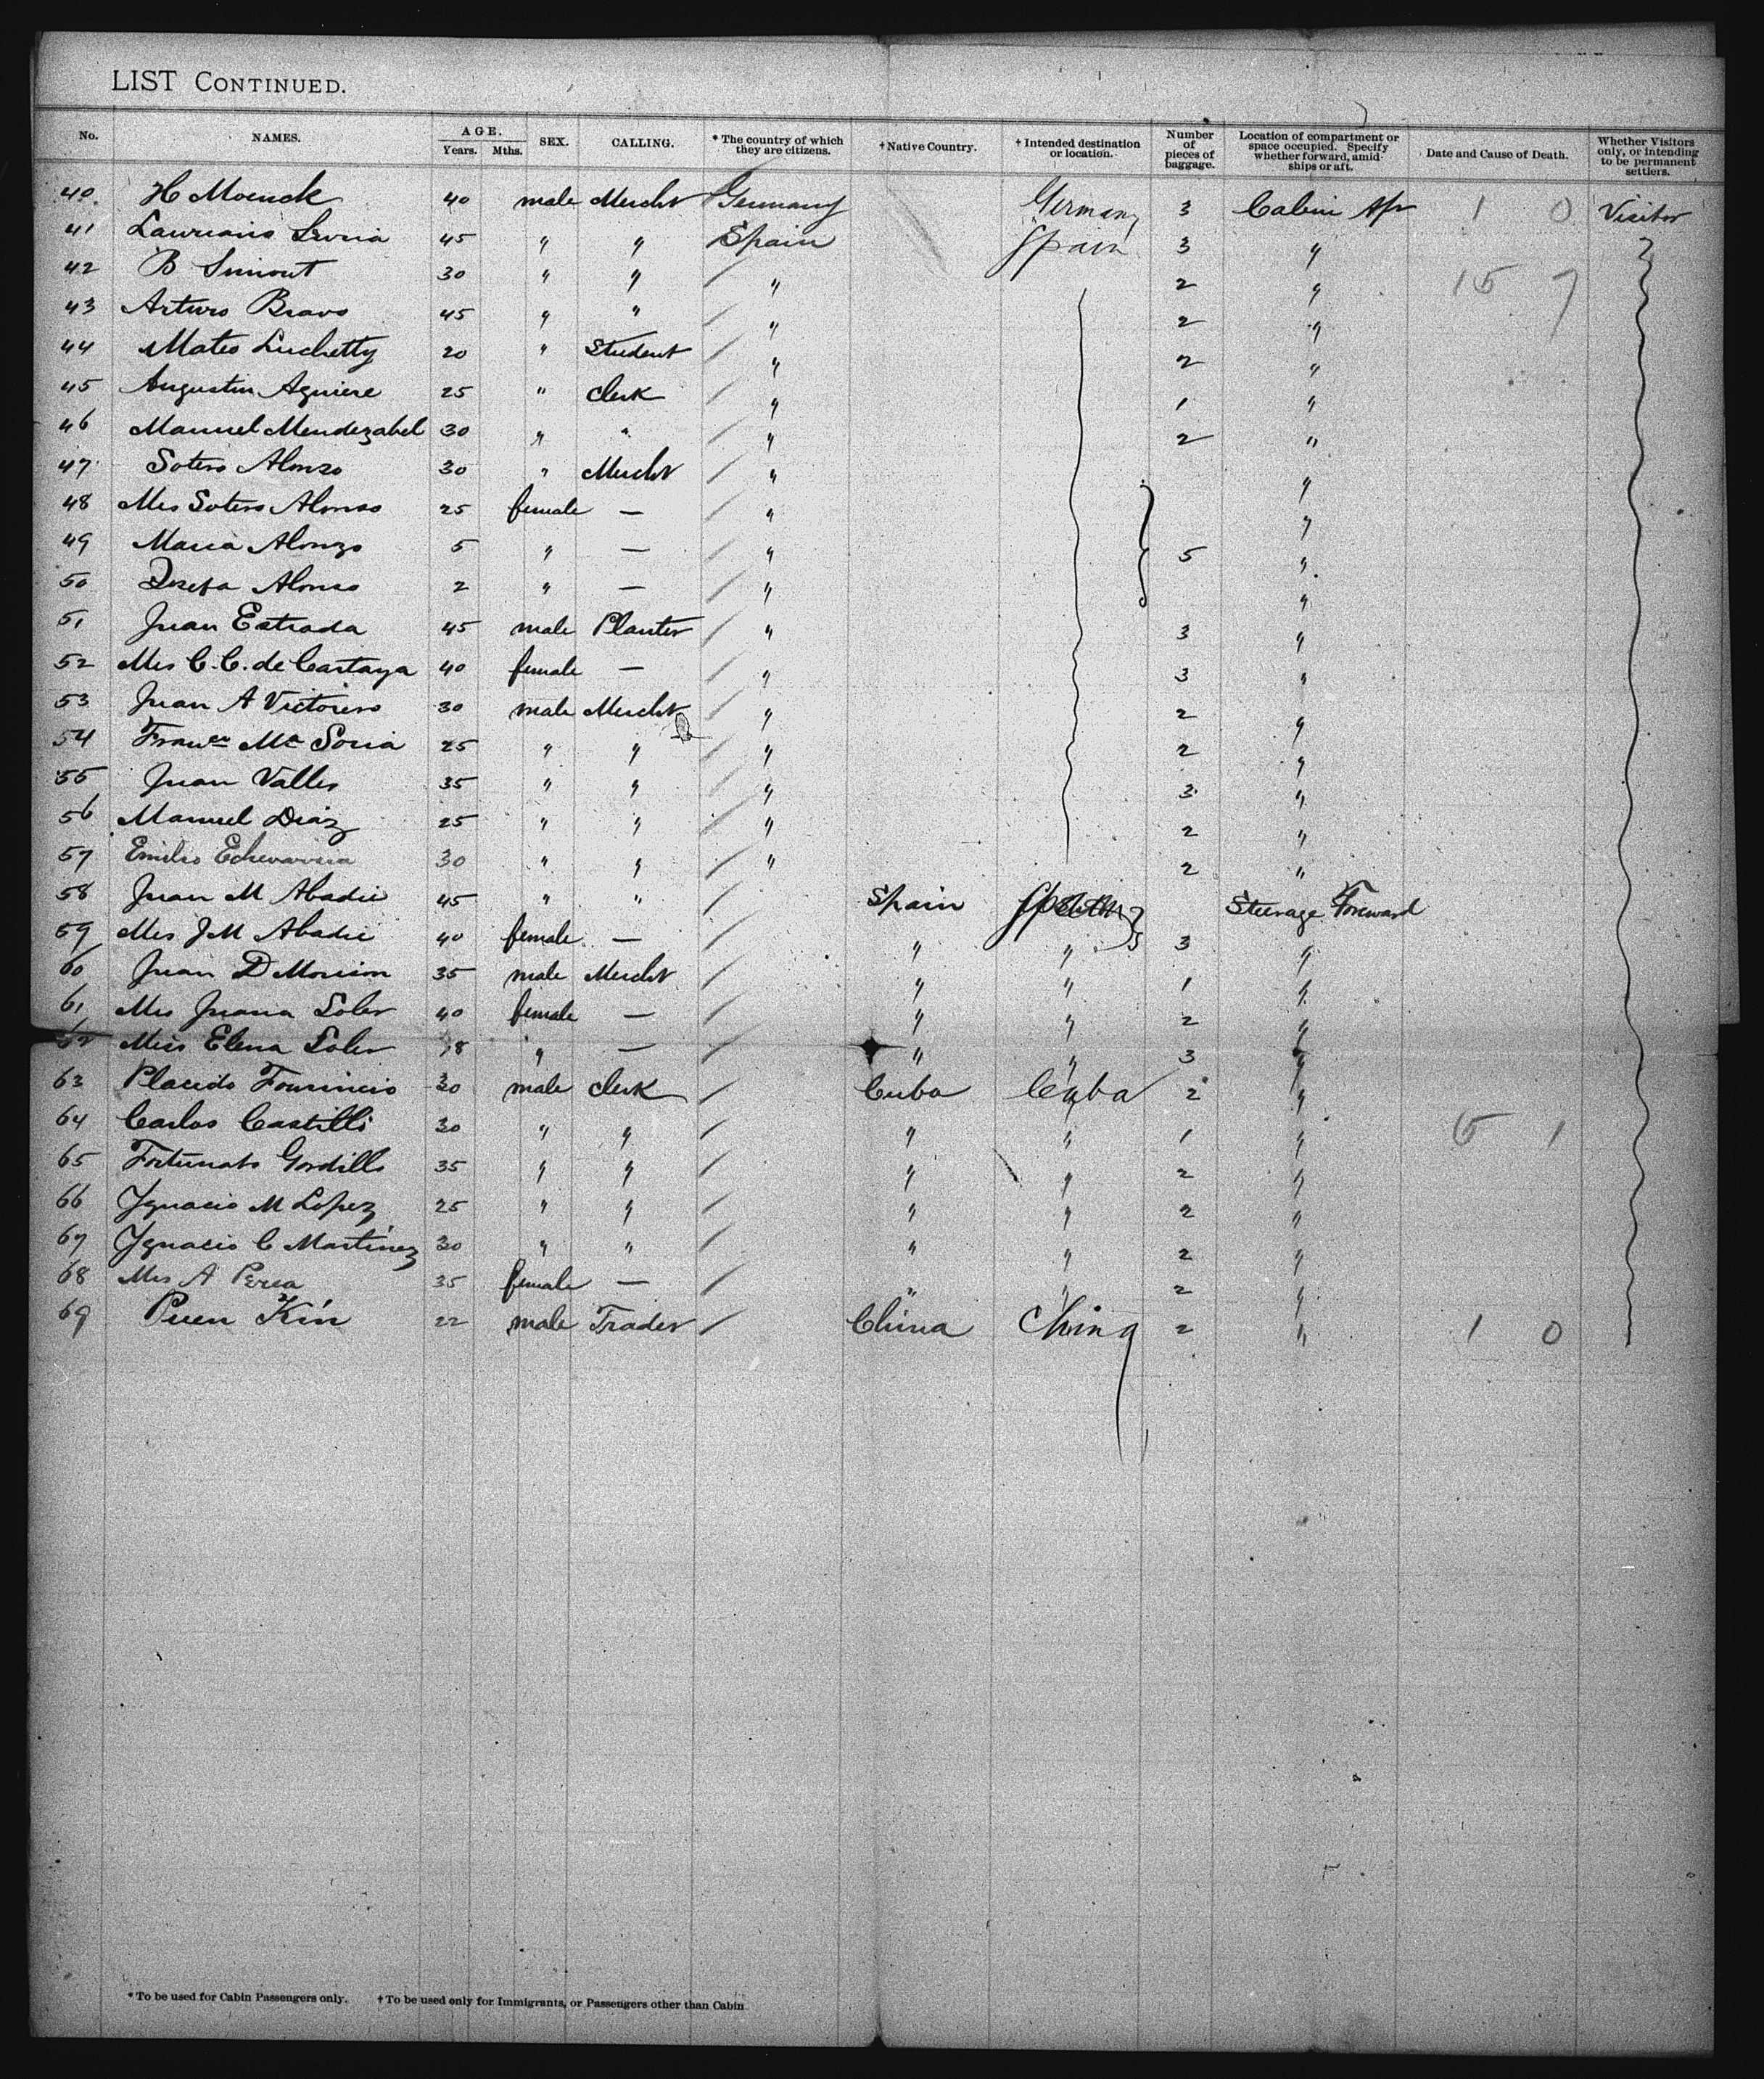 LIST CONTINUED.
No. NAMES. AGE. Years. Mths. SEX. CALLING. * The country of which they are citizens. † Native Country. † Intended destination or location. Number of pieces of baggage. Location of compartment or space occupied. Specify whether forward, amid-ships or aft. Date and Cause of Death. Whether Visitors only, or intending to be permanent settlers.
40. H Moenck 40 male Mercht Germany Germany 3 Cabin Aft 1 0 Visitor
41 45 " " Spain Spain 3 "
42 B Simont 30 " " " 2 " 15 7
43 Arturo Bravo 45 " " " 2 "
44 Mateo Luchetty 20 " Student " 2 "
45 Augustin Aguiere 25 " Clerk " 1 "
46 Manuel Mendezabel 30 " " " 2 "
47 Sotero Alonzo 30 " Mercht " "
48 Mrs Sotero Alonso 25 female — " "
49 Maria Alonzo 5 " — " 5 "
50 Josefa Alonso 2 " — " "
51 Juan Estrada 45 male Planter " 3 "
52 Mrs C. C. de Cartaya 40 female — " 3 "
53 Juan A Victorero 30 male Mercht " 2 "
54 Franco Ma Soria 25 " " " 2 "
55 Juan Valles 35 " " " 3 "
56 Manuel Diaz 25 " " " 2 "
57 Emilio Echevarria 30 " " " 2 "
58 Juan M Abadie 45 " " Spain Steerage Forward
59 Mrs J M Abadie 40 female — " " 3 "
60 Juan D 35 male Mercht " " 1 "
61 Mrs Juana Soler 40 female — " " 2 "
62 Miss Elena Soler 18 " — " " 3 "
63 Placido 30 male Clerk Cuba Cuba 2 "
64 Carlos Castillo 30 " " " " 1 " 5 1
65 Fortunato Gordillo 35 " " " " 2 "
66 Ygnacio M Lopez 25 " " " " 2 "
67 Ygnacio C Martinez 30 " " " " 2 "
68 Mrs A Perea 35 female — " " 2 "
69 Puen Kin 22 male Trader China China 2 " 1 0
* To be used for Cabin Passengers only. † To be used only for Immigrants, or Passengers other than Cabin